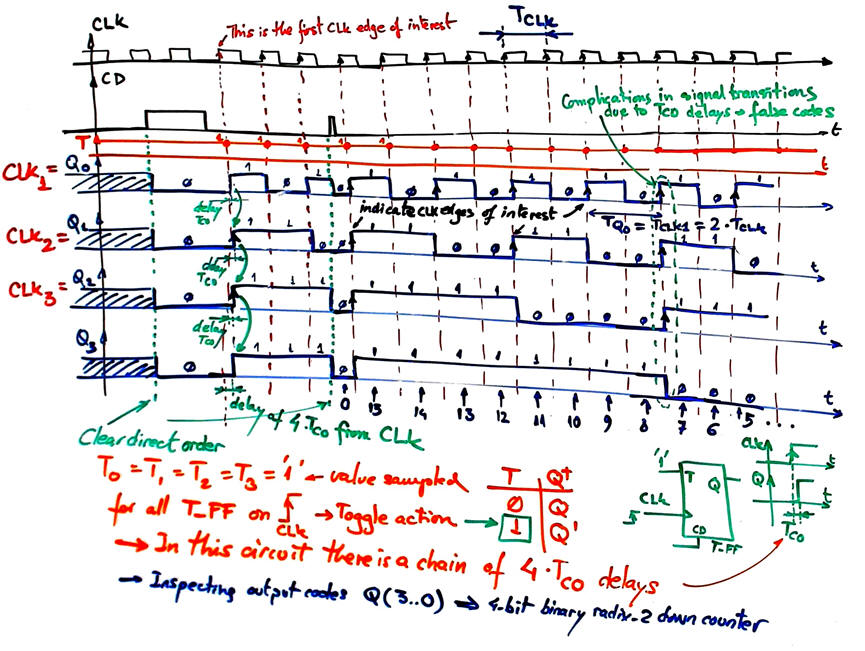 CLK
This is the first CLK edge of interest
TCLK
CD
Complications in signal transitions
due to TCO delays → false codes
t
T 1 1 1 1 1
t
CLK1 = Q0
0 1 0 1 0 1 0 1 0 1 0 1 0 1 0 1
t
delay TCO
indicate CLK edges of interest
TQ0 = TCLK1 = 2·TCLK
CLK2 = Q1
0 1 1 0 0 1 1 0 0 1 1 0 0 1 1
delay TCO
t
CLK3 = Q2
0 1 1 1 0 1 1 1 1 0 0 0 0 1 1 1
delay TCO
t
Q3
0 1 1 1 0 1 1 1 1 1 1 1 1 0 0 0
t
0 13 14 13 12 11 10 9 8 7 6 5 ....
delay of 4·TCO from CLK
Clear direct order
T0 = T1 = T2 = T3 = '1' ← value sampled
for all T_FF on CLK → Toggle action →
T Q+
0 Q
1 Q'
'1' T Q
CLK
CD
T_FF
CLK
t
Q
t
TCO
→ In this circuit there is a chain of 4·TCO delays
→ Inspecting output codes Q(3..0) → 4-bit binary radix-2 down counter